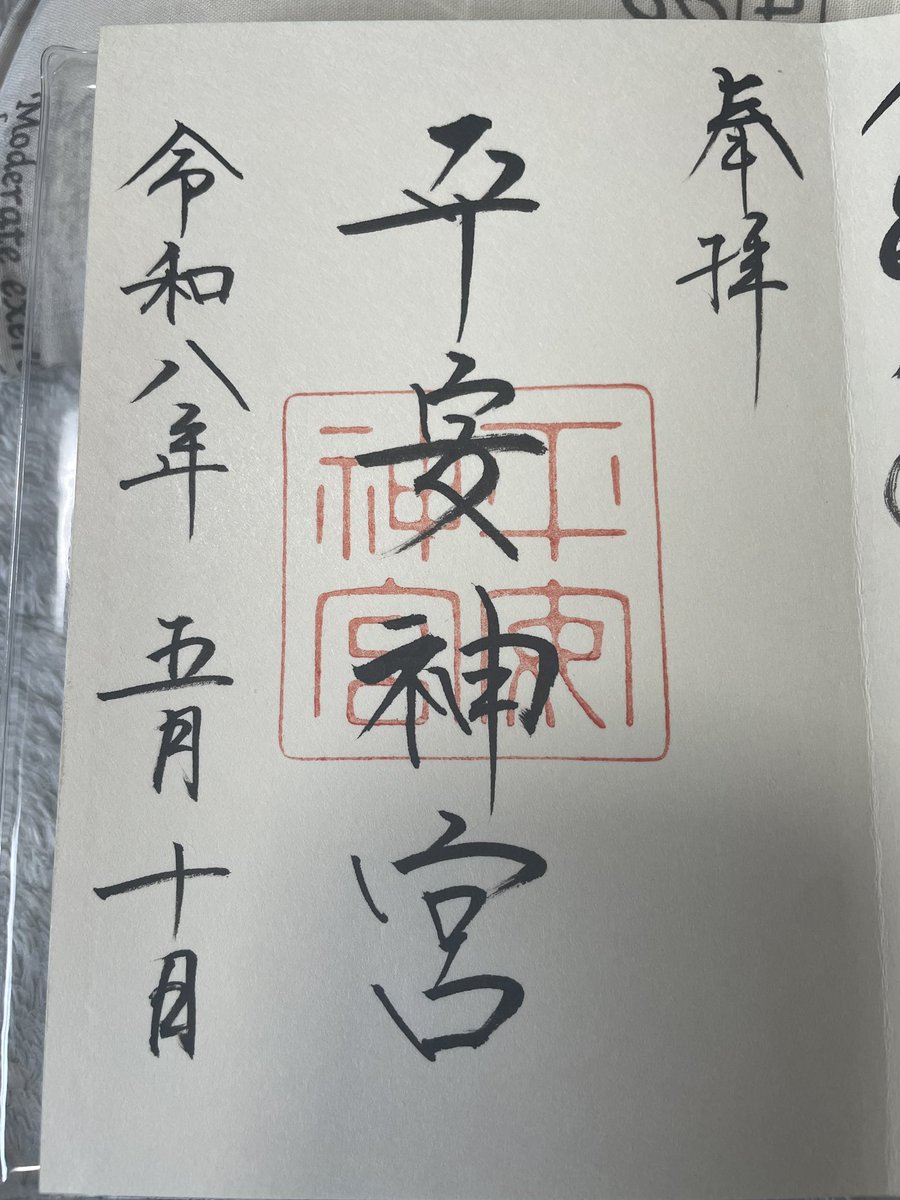 奉拝
平安神宮
令和八年 五月十日
平安
神宮
"Moderate